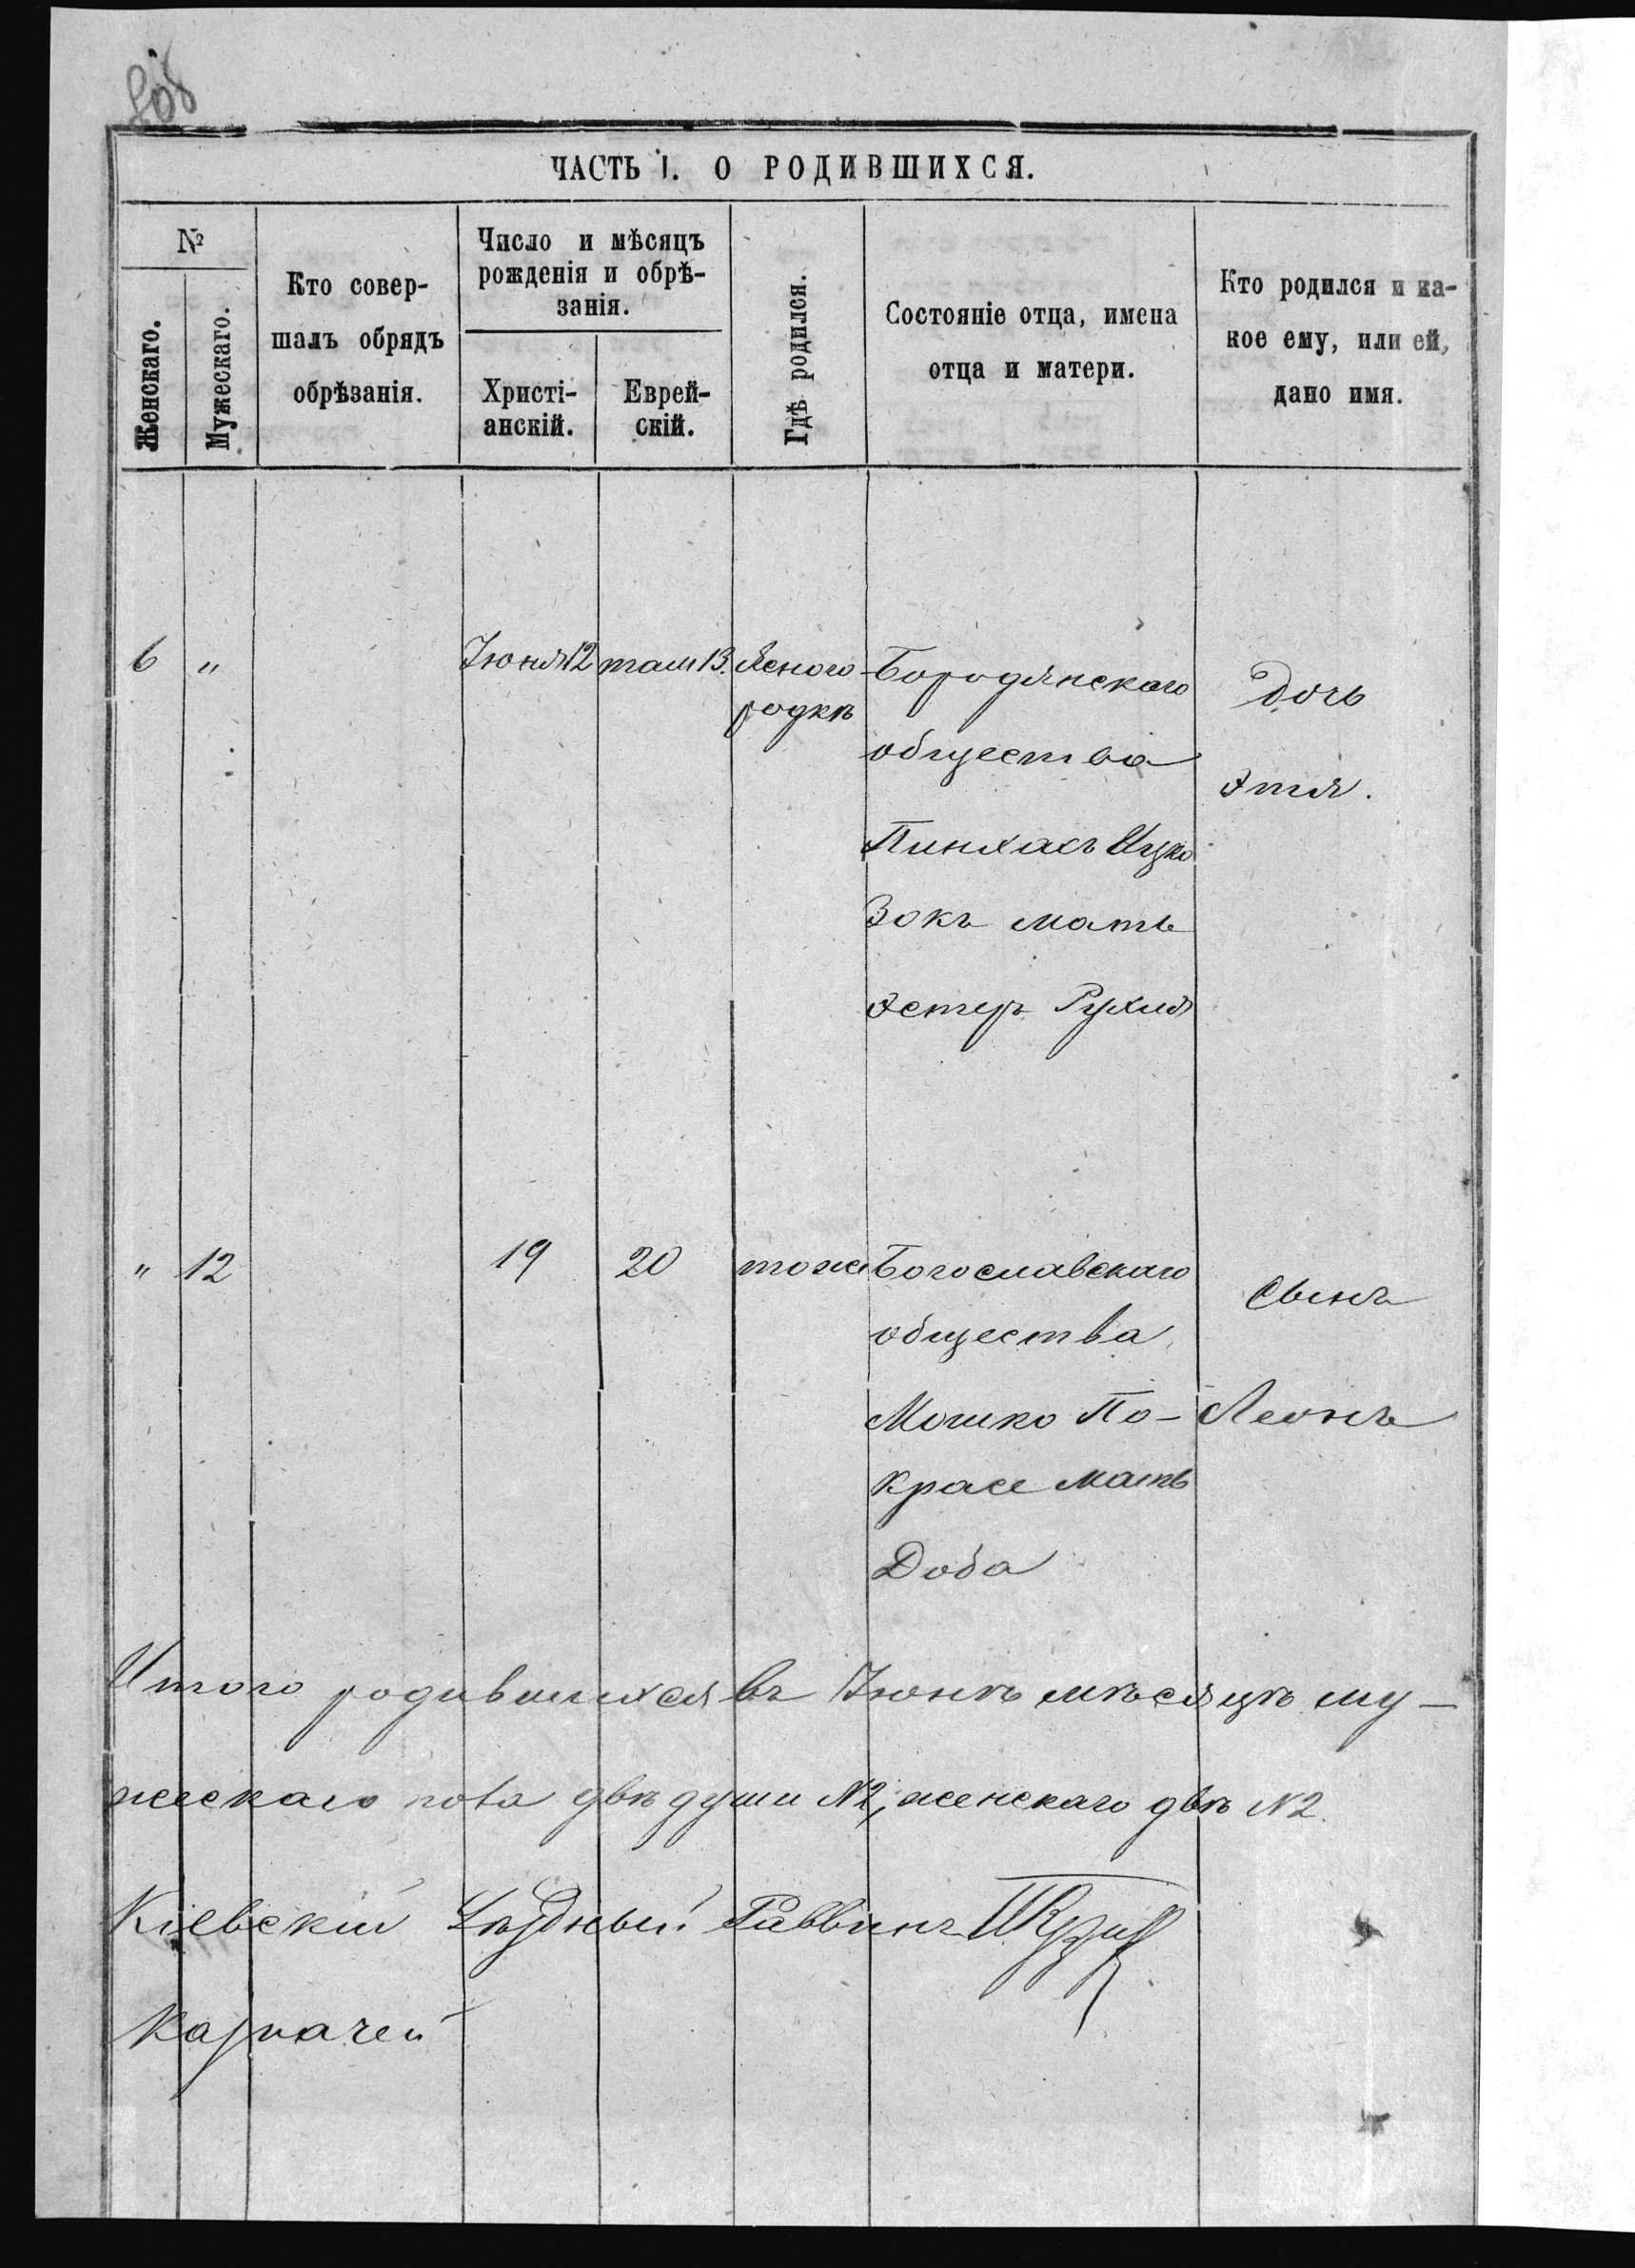 ЧАСТЬ I. О РОДИВШИХСЯ.
№
Женскаго.
Мужескаго.
Кто совер-
шалъ обрядъ
обрѣзанія.
Число и мѣсяцъ
рожденія и обрѣ-
занія.
Христі-
анскій.
Еврей-
скій.
Гдѣ родился.
Состояніе отца, имена
отца и матери.
Кто родился и ка-
кое ему, или ей,
дано имя.
6 " Іюня 12 там 13. Ясного
родкѣ
Бородянскаго
общества
Пинхасъ Ицко
Зокъ мать
Эстеръ Рухля
Дочь
Этя.
" 12 19 20 тоже
Богославскаго
общества
Мошко По-
красе мать
Доба
Сынъ
Леонъ
Итого родившихся въ Іюнѣ мѣсяцѣ му-
жескаго пола двѣ души №2, женскаго двѣ №2.
Кіевскій Уѣздный Раввинъ
Казначей